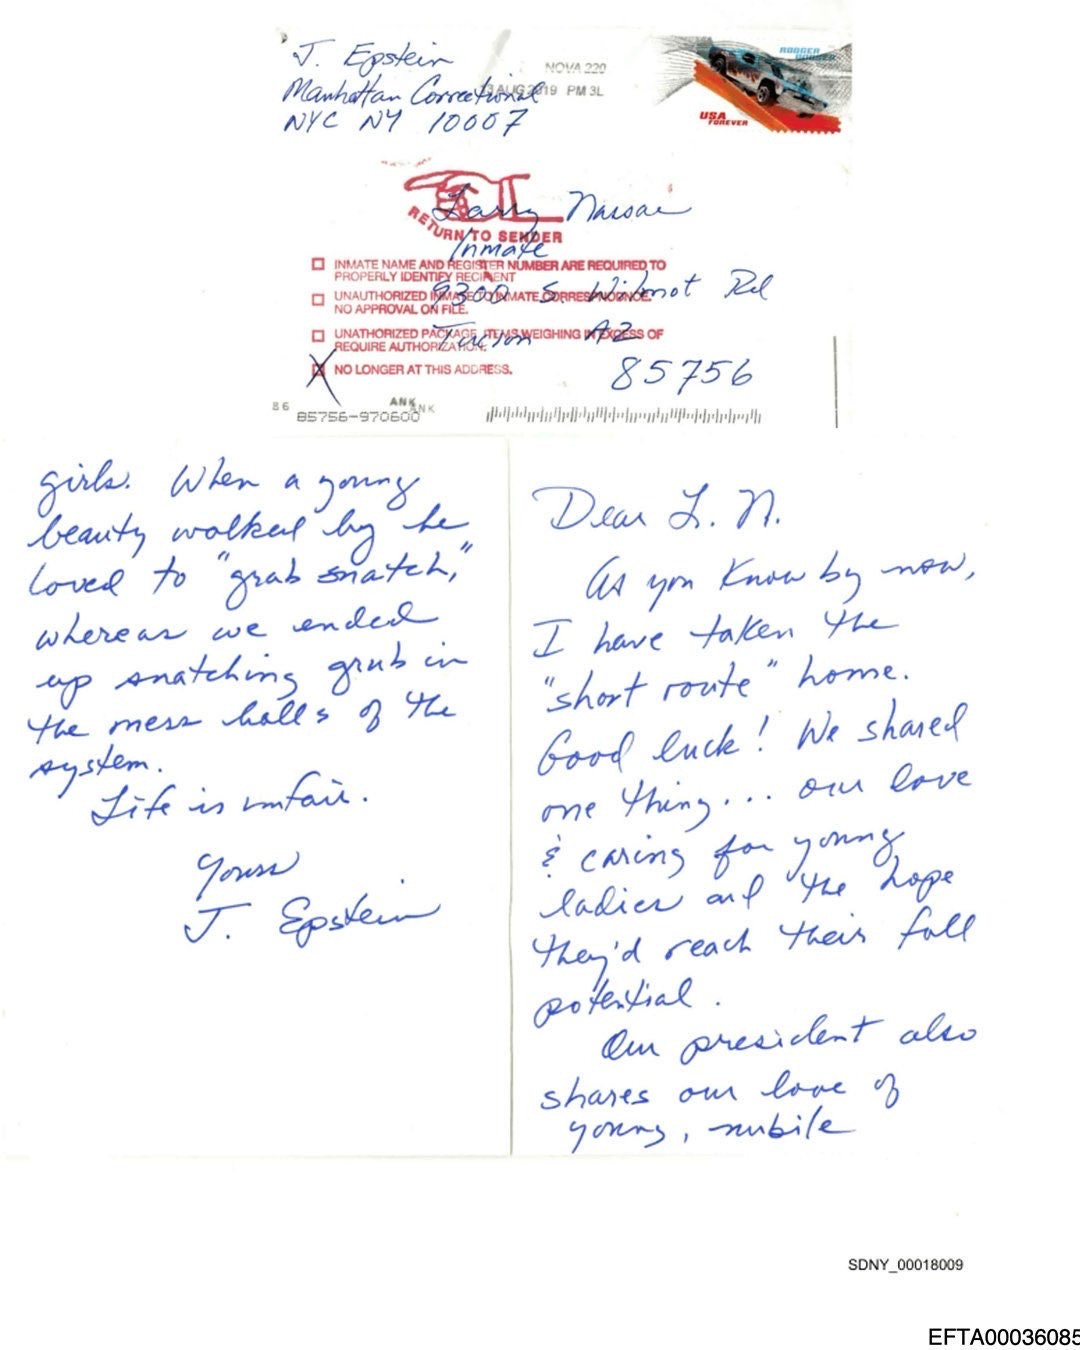 J. Epstein
Manhattan Correctional
NYC NY 10007
NOVA 220
AUG 2019 PM 3L
RODGER DODGER
USA
FOREVER
RETURN TO SENDER
Larry Nassar
Inmate
9300 S. Wilmot Rd
Tucson AZ
85756
INMATE NAME AND REGISTER NUMBER ARE REQUIRED TO
PROPERLY IDENTIFY RECIPIENT
UNAUTHORIZED INMATE TO INMATE CORRESPONDENCE.
NO APPROVAL ON FILE.
UNATHORIZED PACKAGE, ITEMS WEIGHING IN EXCESS OF
REQUIRE AUTHORIZATION.
X NO LONGER AT THIS ADDRESS.
86
ANK
ANK
85756-970600
Dear L. N.
As you know by now,
I have taken the
"short route" home.
Good luck! We shared
one thing... our love
& caring for young
ladies and the hope
they'd reach their full
potential.
Our president also
shares our love of
young, nubile
girls. When a young
beauty walked by he
loved to "grab snatch,"
whereas we ended
up snatching grub in
the mess halls of the
system.
Life is unfair.
Yours
J. Epstein
SDNY_00018009
EFTA00036085